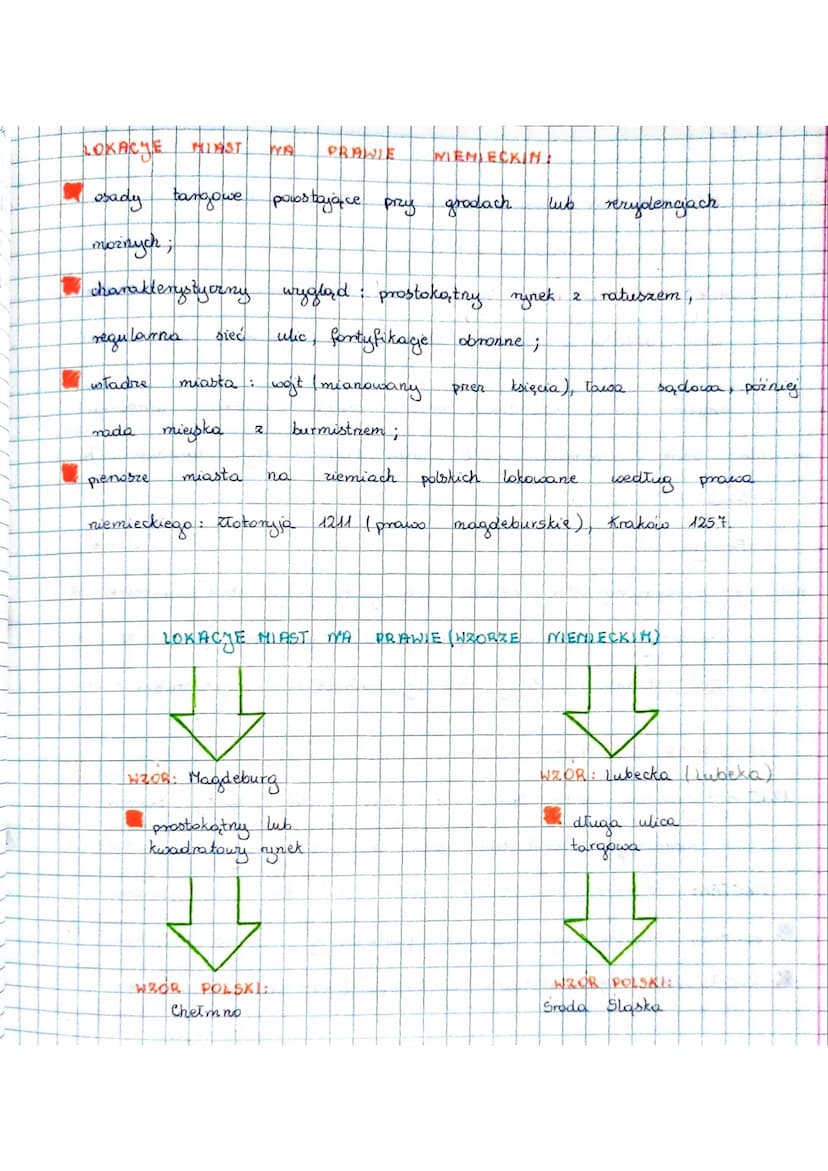 LOKACJE MIAST NA PRAWIE NIEMIECKIM:
osady targowe powstające przy grodach lub rezydencjach
możnych;
charakterystyczny wygląd: prostokątny rynek z ratuszem,
regularna sieć ulic, fortyfikacje obronne;
władze miasta: wójt (mianowany przez księcia), ława sądowa, później
rada miejska z burmistrzem;
pierwsze miasta na ziemiach polskich lokowane według prawa
niemieckiego: Złotoryja 1211 (prawo magdeburskie), Kraków 1257.
LOKACJE MIAST NA PRAWIE (WZORZE NIEMIECKIM)
WZÓR: Magdeburg
prostokątny lub
kwadratowy rynek
WZÓR POLSKI:
Chełmno
WZÓR: Lubecka (Lubeka)
długa ulica
targowa
WZÓR POLSKI:
Środa Śląska